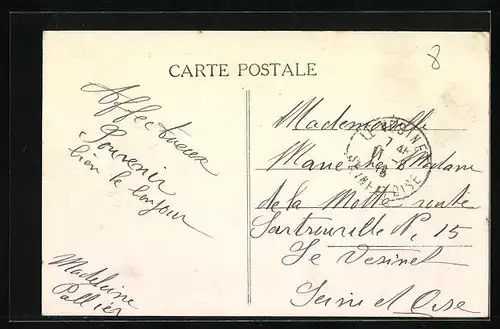 8
CARTE POSTALE
Affectueux
Souvenir
bien le bonjour
Madeleine
Pallier
Mademoiselle
Marie chez Madame
de la Motte route
Sartrouville N. 15
Le Vesinet
Seine et Oise